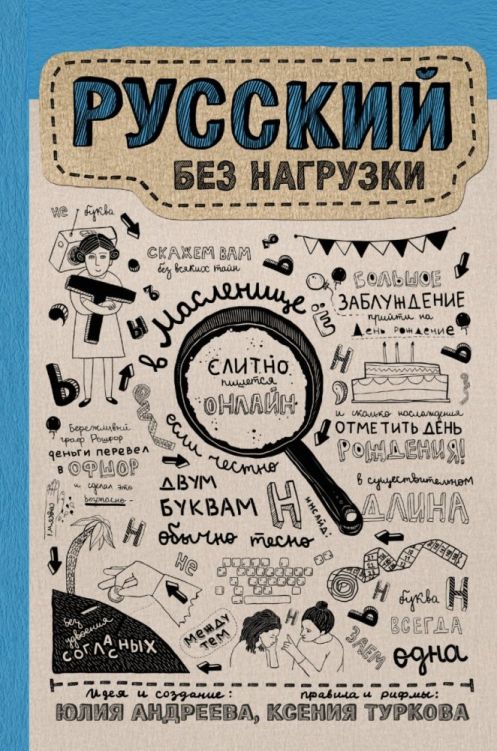 РУССКИЙ
БЕЗ НАГРУЗКИ
не буква
Т
СКАЖЕМ ВАМ
без всяких тайн
Ь
ы
ъ
Ь
Ъ
в Масленице
СЛИТНО
пишется
ОНЛАЙН
БОЛЬШОЕ
ЗАБЛУЖДЕНИЕ
прийти на
День рождение
Н
Ь
и сколько наслаждения
ОТМЕТИТЬ ДЕНЬ
РОЖДЕНИЯ!
Бережливый
граф Рошфор
деньги перевел
в ОФШОР
и сделал это
если честно
ДВУМ
БУКВАМ
Н
обычно тесно
инсайд:
в существительном
ДЛИНА
Н
буква Н
ВСЕГДА
одна
не
без
удвоения
СОГЛАСНЫХ
МЕЖДУ
ТЕМ
ЗАЕМ
Идея и создание:
правила и рифмы:
ЮЛИЯ АНДРЕЕВА, КСЕНИЯ ТУРКОВА